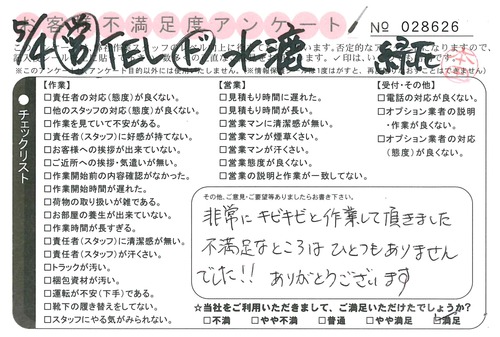 お客様不満足度アンケート
№ 028626
5/4
チェックリスト
【作業】
□責任者の対応(態度)が良くない。
□他のスタッフの対応(態度)が良くない。
□作業を見ていて不安がある。
□責任者(スタッフ)に好感が持てない。
□お客様への挨拶が出来ていない。
□ご近所への挨拶・気遣いが無い。
□作業開始前の内容確認がなかった。
□作業開始時間が遅れた。
□荷物の取り扱いが雑である。
□お部屋の養生が出来ていない。
□作業時間が長すぎる。
□責任者(スタッフ)に清潔感が無い。
□責任者(スタッフ)が汗くさい。
□トラックが汚い。
□梱包資材が汚い。
□運転が不安(下手)である。
□靴下の履き替えをしてない。
□スタッフにやる気がみられない。
【営業】
□見積もり時間に遅れた。
□見積もり時間が長い。
□営業マンに清潔感が無い。
□営業マンが煙草くさい。
□営業マンが汗くさい。
□営業態度が良くない。
□営業の説明と作業が一致してない。
【受付・その他】
□電話の対応が良くない。
□オプション業者の説明
・作業が良くない。
□オプション業者の対応
(態度)が良くない。
その他、ご意見・ご要望等ありましたらお書き下さい。
非常にキビキビと作業して頂きました
不満足なところはひとつもありません
でした!! ありがとうございます
☆当社をご利用いただきまして、ご満足いただけたでしょうか?
□不満 □やや不満 □普通 □やや満足 □満足